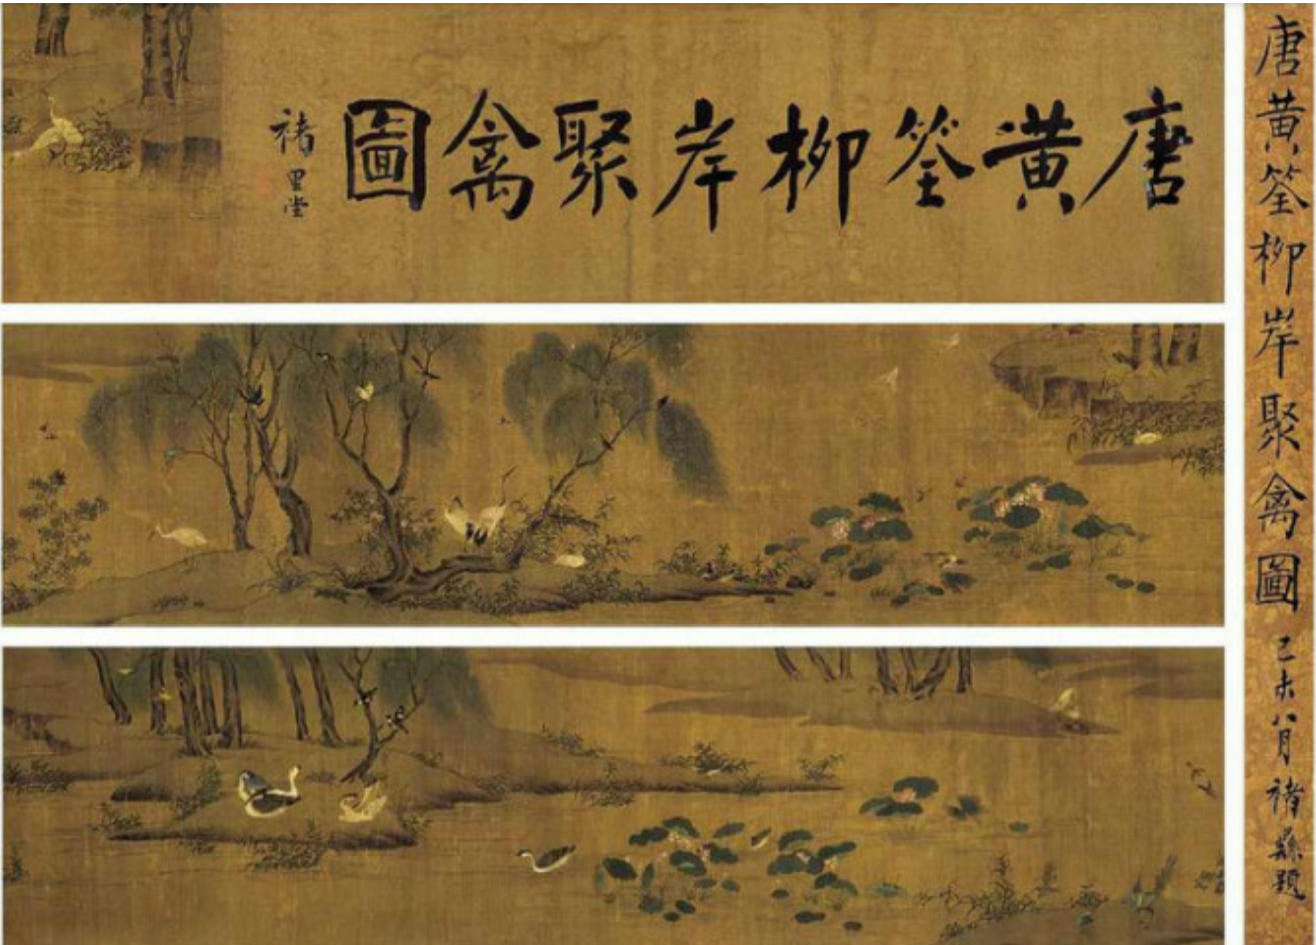 唐黄筌柳岸聚禽圖
己未八月褚題
唐黄筌柳岸聚禽圖
褚里堂